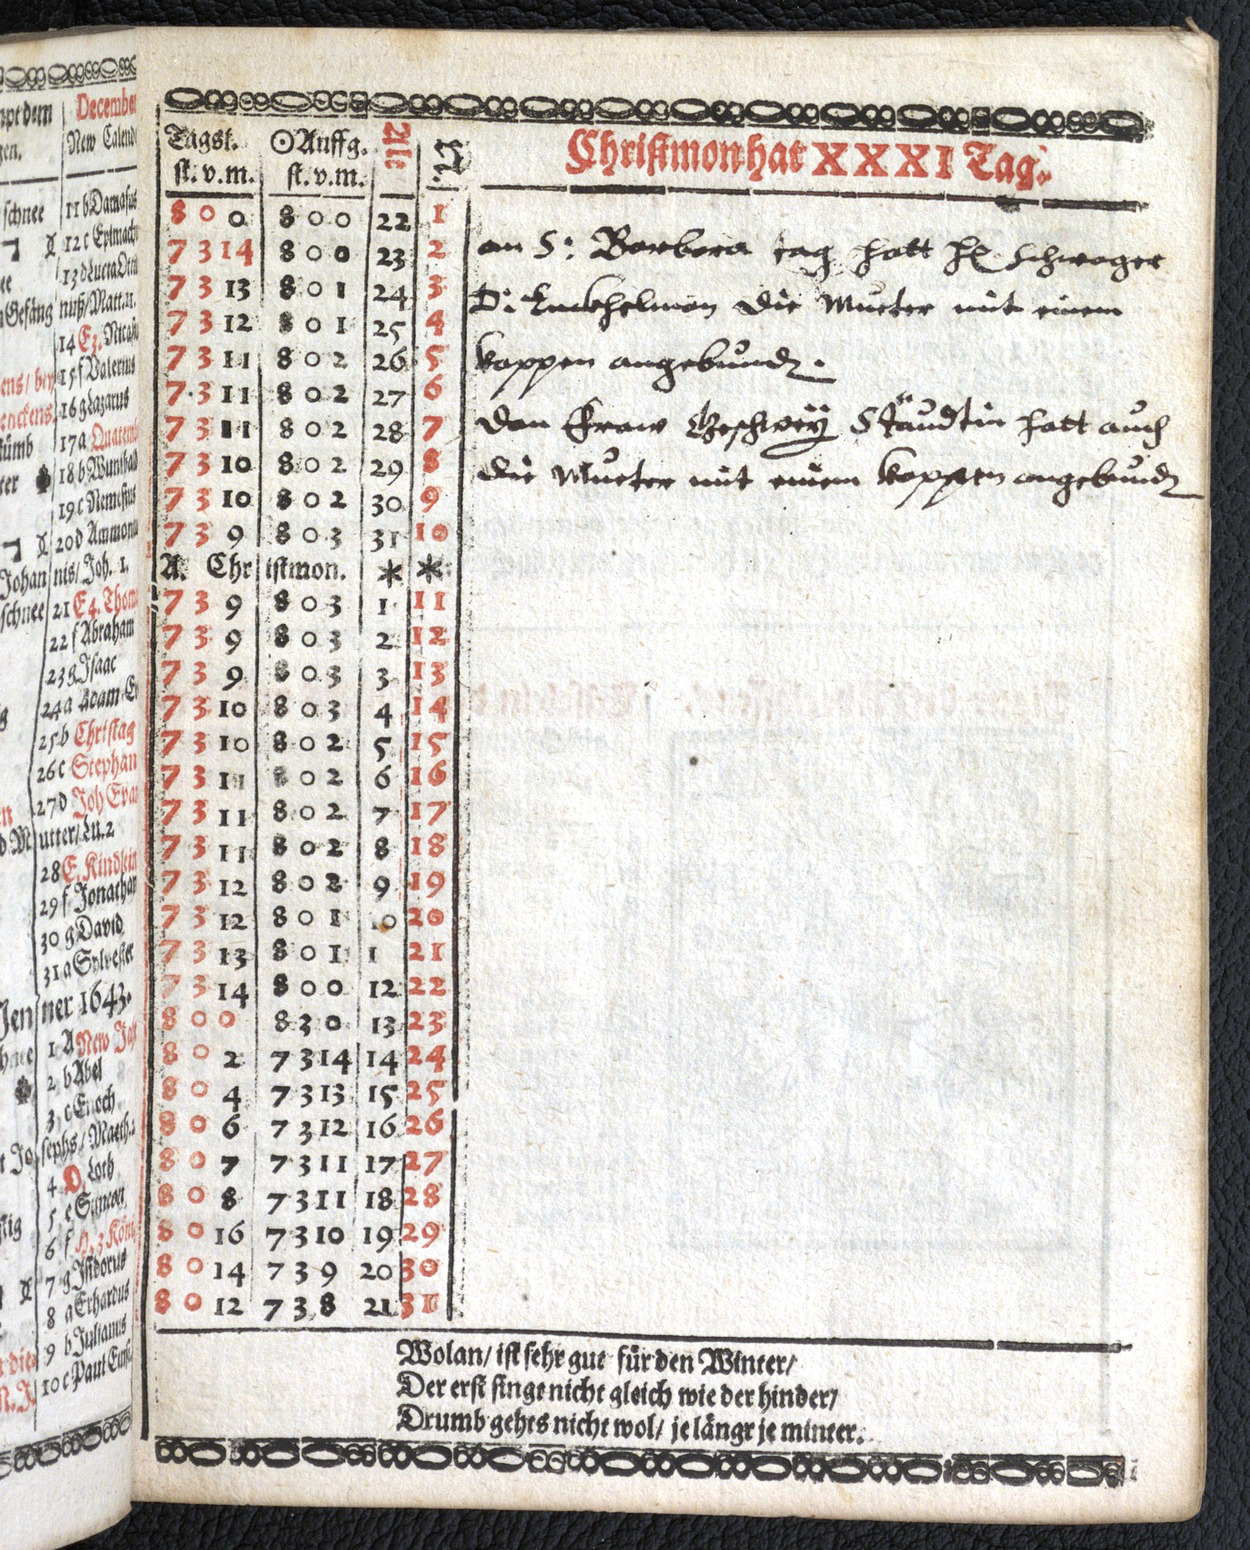 Tagsl. ☉Auffg. Alt N
st. v. m. st. v. m.
Christmon hat XXXI Tag.
8 0 0 8 0 0 22 1
7 3 14 8 0 0 23 2
7 3 13 8 0 1 24 3
7 3 12 8 0 1 25 4
7 3 11 8 0 2 26 5
7 3 11 8 0 2 27 6
7 3 11 8 0 2 28 7
7 3 10 8 0 2 29 8
7 3 10 8 0 2 30 9
7 3 9 8 0 3 31 10
A. Christmon. * *
7 3 9 8 0 3 1 11
7 3 9 8 0 3 2 12
7 3 9 8 0 3 3 13
7 3 10 8 0 3 4 14
7 3 10 8 0 2 5 15
7 3 11 8 0 2 6 16
7 3 11 8 0 2 7 17
7 3 11 8 0 2 8 18
7 3 12 8 0 2 9 19
7 3 12 8 0 1 10 20
7 3 13 8 0 1 1 21
7 3 14 8 0 0 12 22
8 0 0 8 3 0 13 23
8 0 2 7 3 14 14 24
8 0 4 7 3 13 15 25
8 0 6 7 3 12 16 26
8 0 7 7 3 11 17 27
8 0 8 7 3 11 18 28
8 0 16 7 3 10 19 29
8 0 14 7 3 9 20 30
8 0 12 7 3 8 21 31
an S: Barbera tag hatt H. Schwager
D: die Mueter mit einem
kappen angebund.
dan Fraw Geschwey Stäudtin hatt auch
die Mueter mit einem kappen angebund
Wolan/ ist sehr gut für den Winter/
Der erst singt nicht gleich wie der hinder/
Drumb gehts nicht wol/ je längr je minter.
December
New Calend
schnee 11 b Damasus
12 c Epimach
14 E3. Nicasi
15 f Valerius
16 g Lazarus
17 a Quatemb
18 b Wunibald
19 c Nemesius
20 d Ammon
Johannis/ Joh. 1.
schnee 21 E4. Thom
22 f Abraham
23 g Isaac
24 a Adam Ev
25 b Christag
26 c Stephan
27 d Joh Evan
Mutter/ Lu. 2
28 E. Kindlein
29 f Jonathan
30 g David
31 a Sylvester
Jenner 1643.
1 A New Jah
2 b Abel
3 c Enoch
Josephs/ Matth. 2
4 D. Loth
5 e Simeon
6 f H. 3 Köni
7 g Isidorus
8 a Erhardus
9 b Julianus
10 c Paul Eins